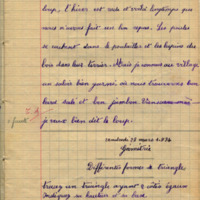 loup, l'hiver est rude et voilà longtemps que
nous n'avons fait un bon repas. Les poules
se cachent dans le poulailler et les lapins des
bois dans leur terrier. Mais je connais au village
un saloir bien garni, où nous trouverons bon
lard salé et bon jambon
je veux bien dit le loup.
vendredi mars
Géométrie
Différentes formes de triangle
tracez un triangle ayant 2 côtés égaux
indiquez sa hauteur et sa base